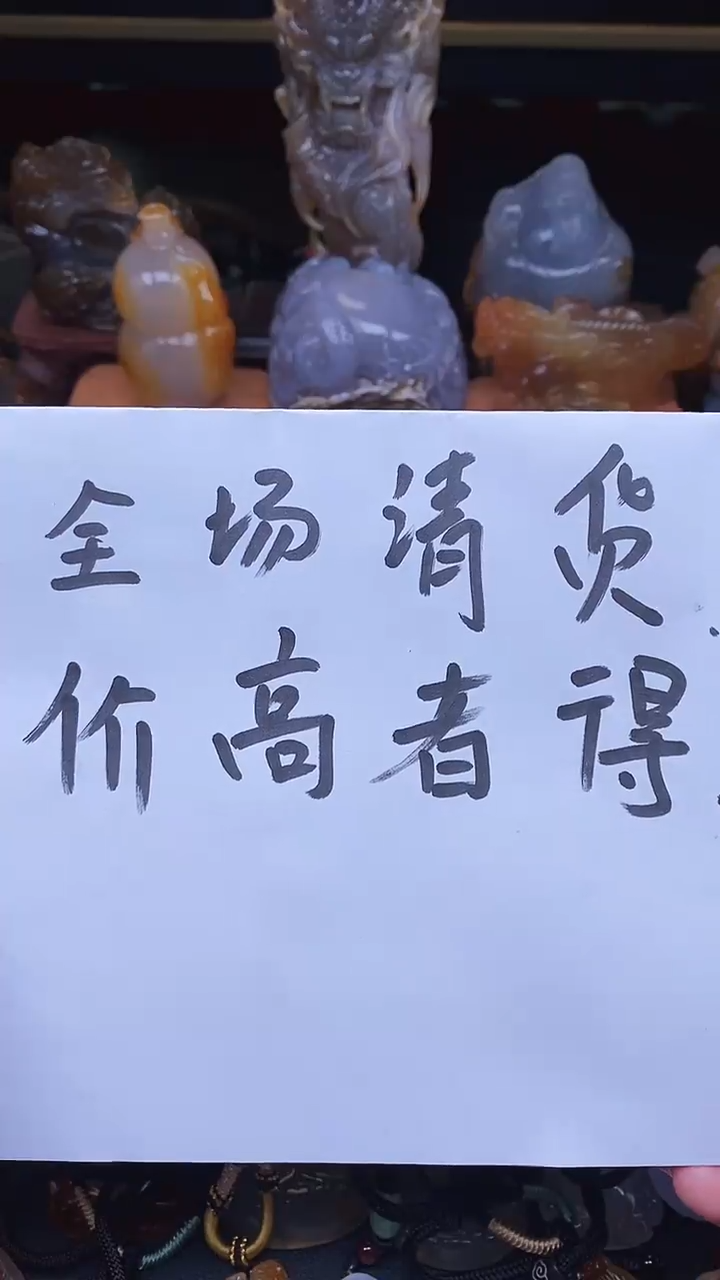 全场清货
价高者得